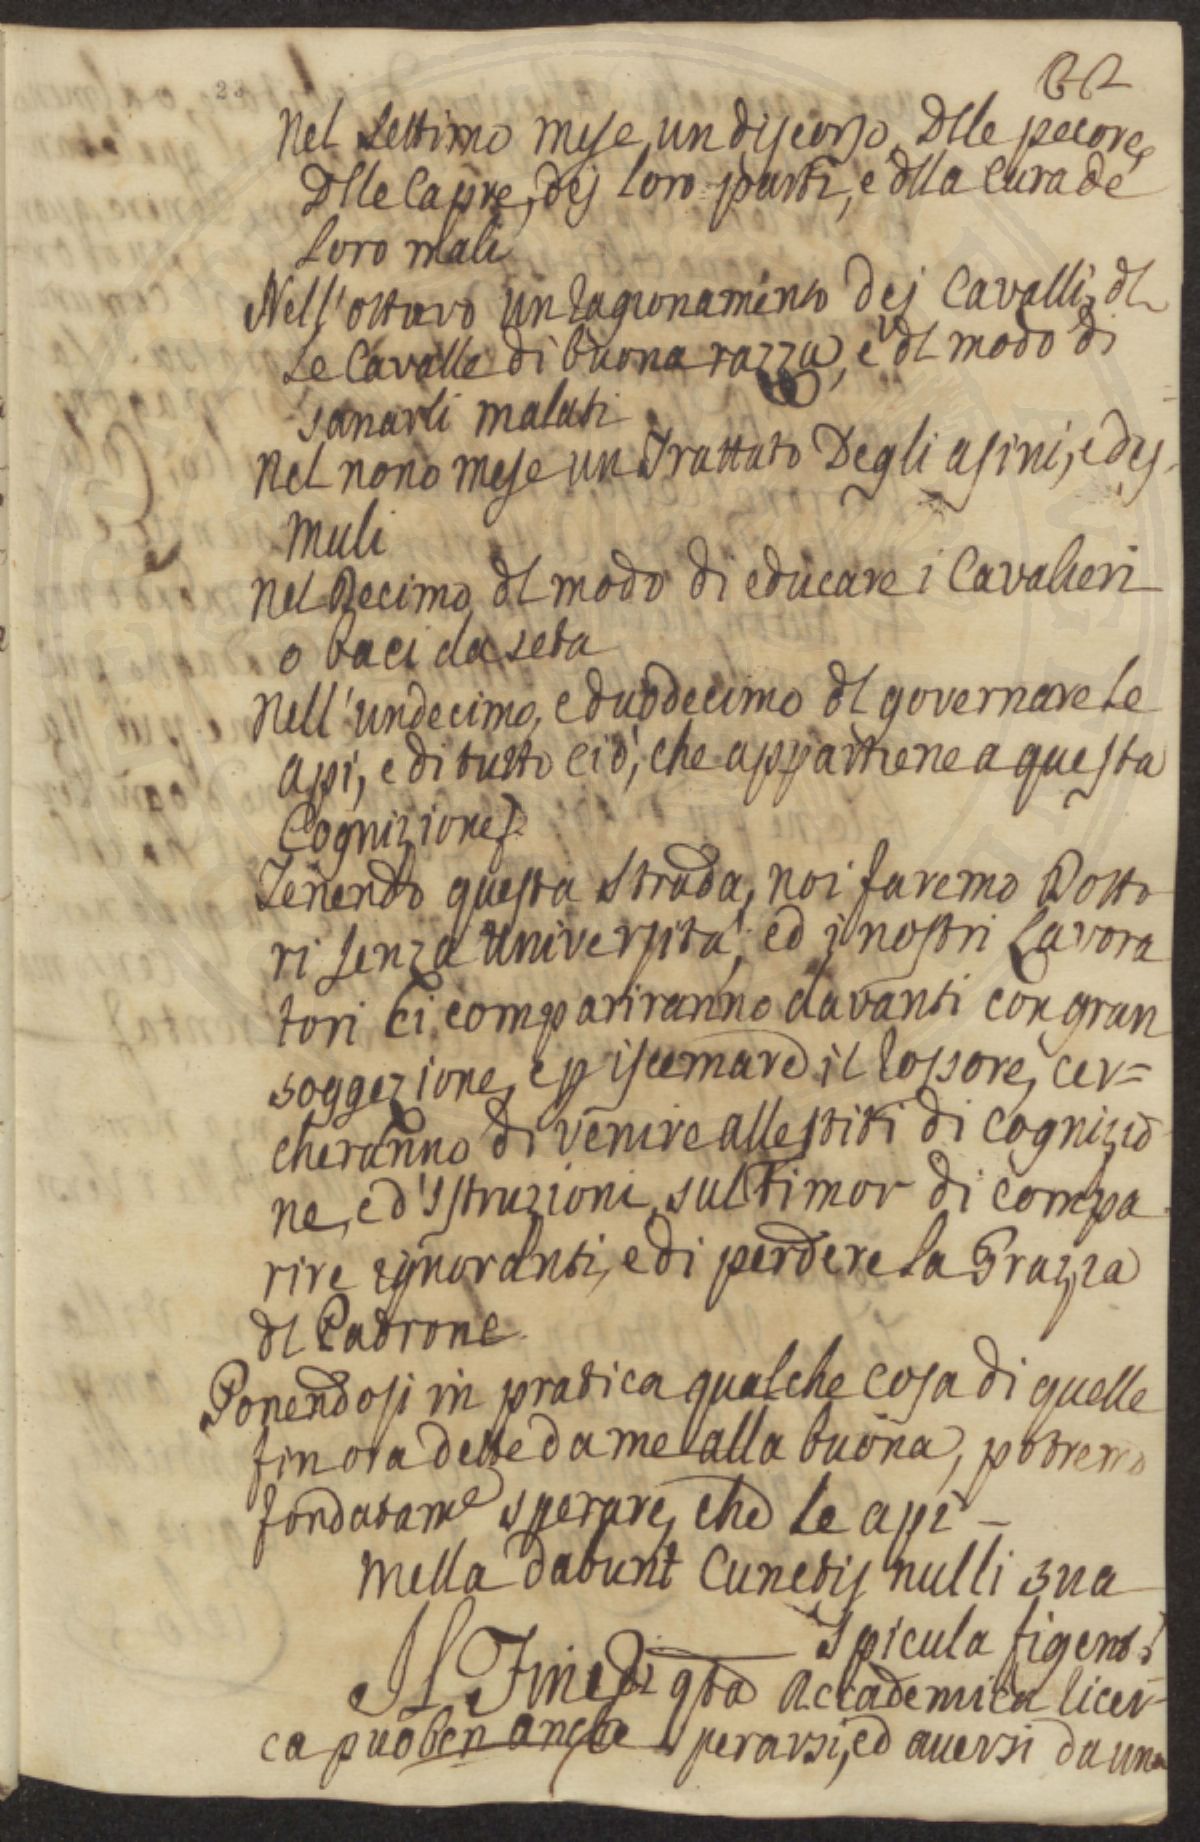 23
22
Nel settimo mese, un discorso dlle pecore,
Dlle Capre, dej loro parti, e dlla Cura de
loro mali
Nell'ottavo un ragionamento dej Cavalli, dl
le Cavalle di buona razza, e dl modo di
sanarli malati
Nel nono mese un Trattato Degli asini, e dej
muli
Nel Decimo, dl modo di educare i Cavalieri
o baci da seta
Nell'undecimo, e duodecimo dl governare le
api, e di tutto ciò, che appartiene a questa
Cognizione
Tenendo questa strada, noi faremo Dotto
ri senza Università, ed i nostri Lavora
tori ci compariranno davanti con gran
soggezione, e p iscemare il rossore, cer=
cheranno di venire allestiti di cognizio
ne, ed'Istruzioni, sul timor di compa
rire ignoranti, e di perdere la Grazia
dl Padrone
Ponendosi in pratica qualche cosa di quelle
fin ora dette da me alla buona, potremo
fondatame sperare, che le api -
Mella dabunt Cunctis, nulli sua
Spicula figent
Il Fine di qsta Accademica ricer-
ca può ben anche sperarsi, ed aversi da una